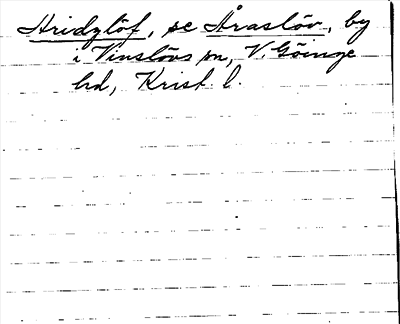 Hridzlöf, se Araslöv, by
i Vinslövs sn, V. Göinge
hd, Krist. l.